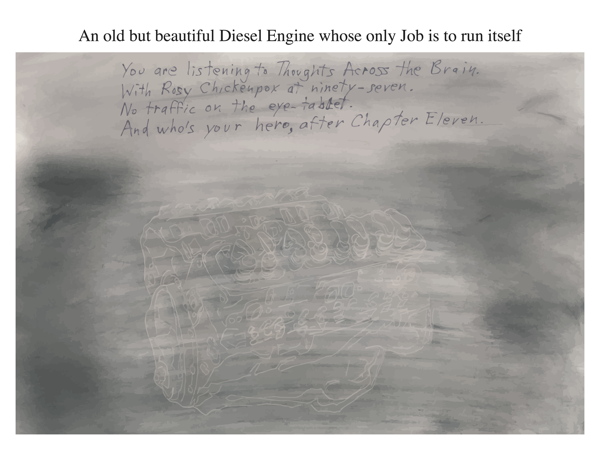 An old but beautiful Diesel Engine whose only Job is to run itself
You are listening to Thoughts Across the Brain.
With Rosy Chickenpox at ninety-seven.
No traffic on the eye-tablet.
And who's your hero, after Chapter Eleven.